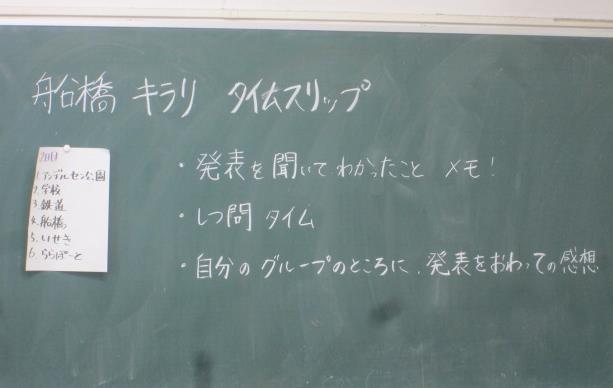 船橋 キラリ タイムスリップ
・発表を聞いてわかったこと メモ!
・しつ問タイム
・自分のグループのところに、発表をおわっての感想
1.アンデルセン公園
2.学校
3.鉄道
4.船橋
5.いせき
6.ららぽーと